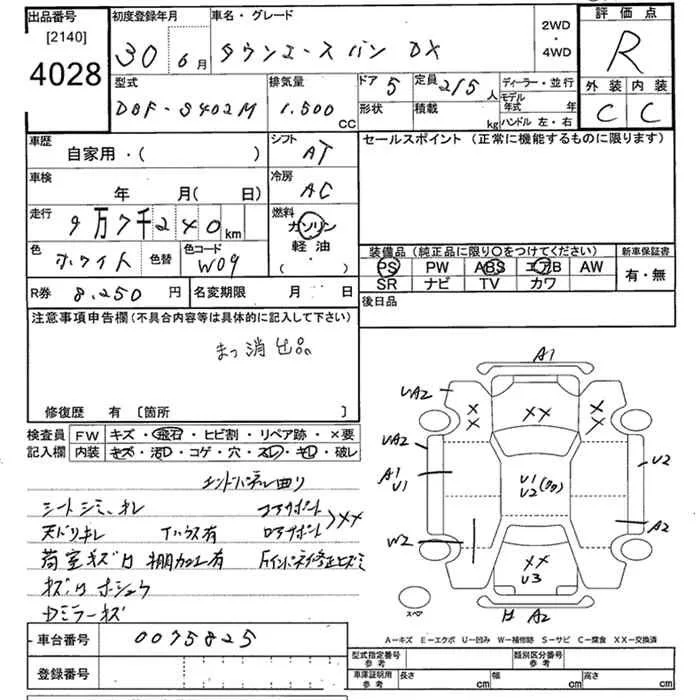 出品番号 初度登録年月 車名・グレード 2WD・4WD 評価点
[2140]
4028
30年 6月 タウンエースバン DX R
型式 排気量 ドア 5 定員 2/5人 ディーラー・並行 外装 内装
DBF-S402M 1.500 CC 形状 積載 kg モデル年式 年 ハンドル 左・右 C C
車歴 自家用・( ) シフト AT セールスポイント (正常に機能するものに限ります)
車検 年 月(日) 冷房 AC
走行 9万7千240km 燃料 ガソリン 軽油 ・( )
色 ホワイト 色替 色コード W09
装備品 (純正品に限り○をつけてください) 新車保証書
PS PW ABS エアB AW 有・無
SR ナビ TV カワ
R券 8.250円 名変期限 月 日 後日品
注意事項申告欄 (不具合内容等は具体的に記入して下さい)
まっ消出品
修復歴 有 [箇所 ]
検査員 FW キズ・飛石・ヒビ割・リペア跡・×要
記入欄 内装 キズ・汚レ・コゲ・穴・スレ・キレ・破レ
エンドパネル曲り
シートシミ、キレ コアサポート
天バリキレ 穴有 ロアサポート >××
荷室キズ凹 棚加工有
キズ凹ホシュウ
ミラーキズ
A1
UA2 ×× ×× ××
UA2 U2
A1 U1 U1 U2
W2 A2
×× U3
スペア A2
A-キズ E-エクボ U-凹み W-補修跡 S-サビ C-腐食 XX-交換済
車台番号 0075825
登録番号
型式指定番号 参考 類別区分番号 参考
車庫証明用 参考 長さ cm 幅 cm 高さ cm